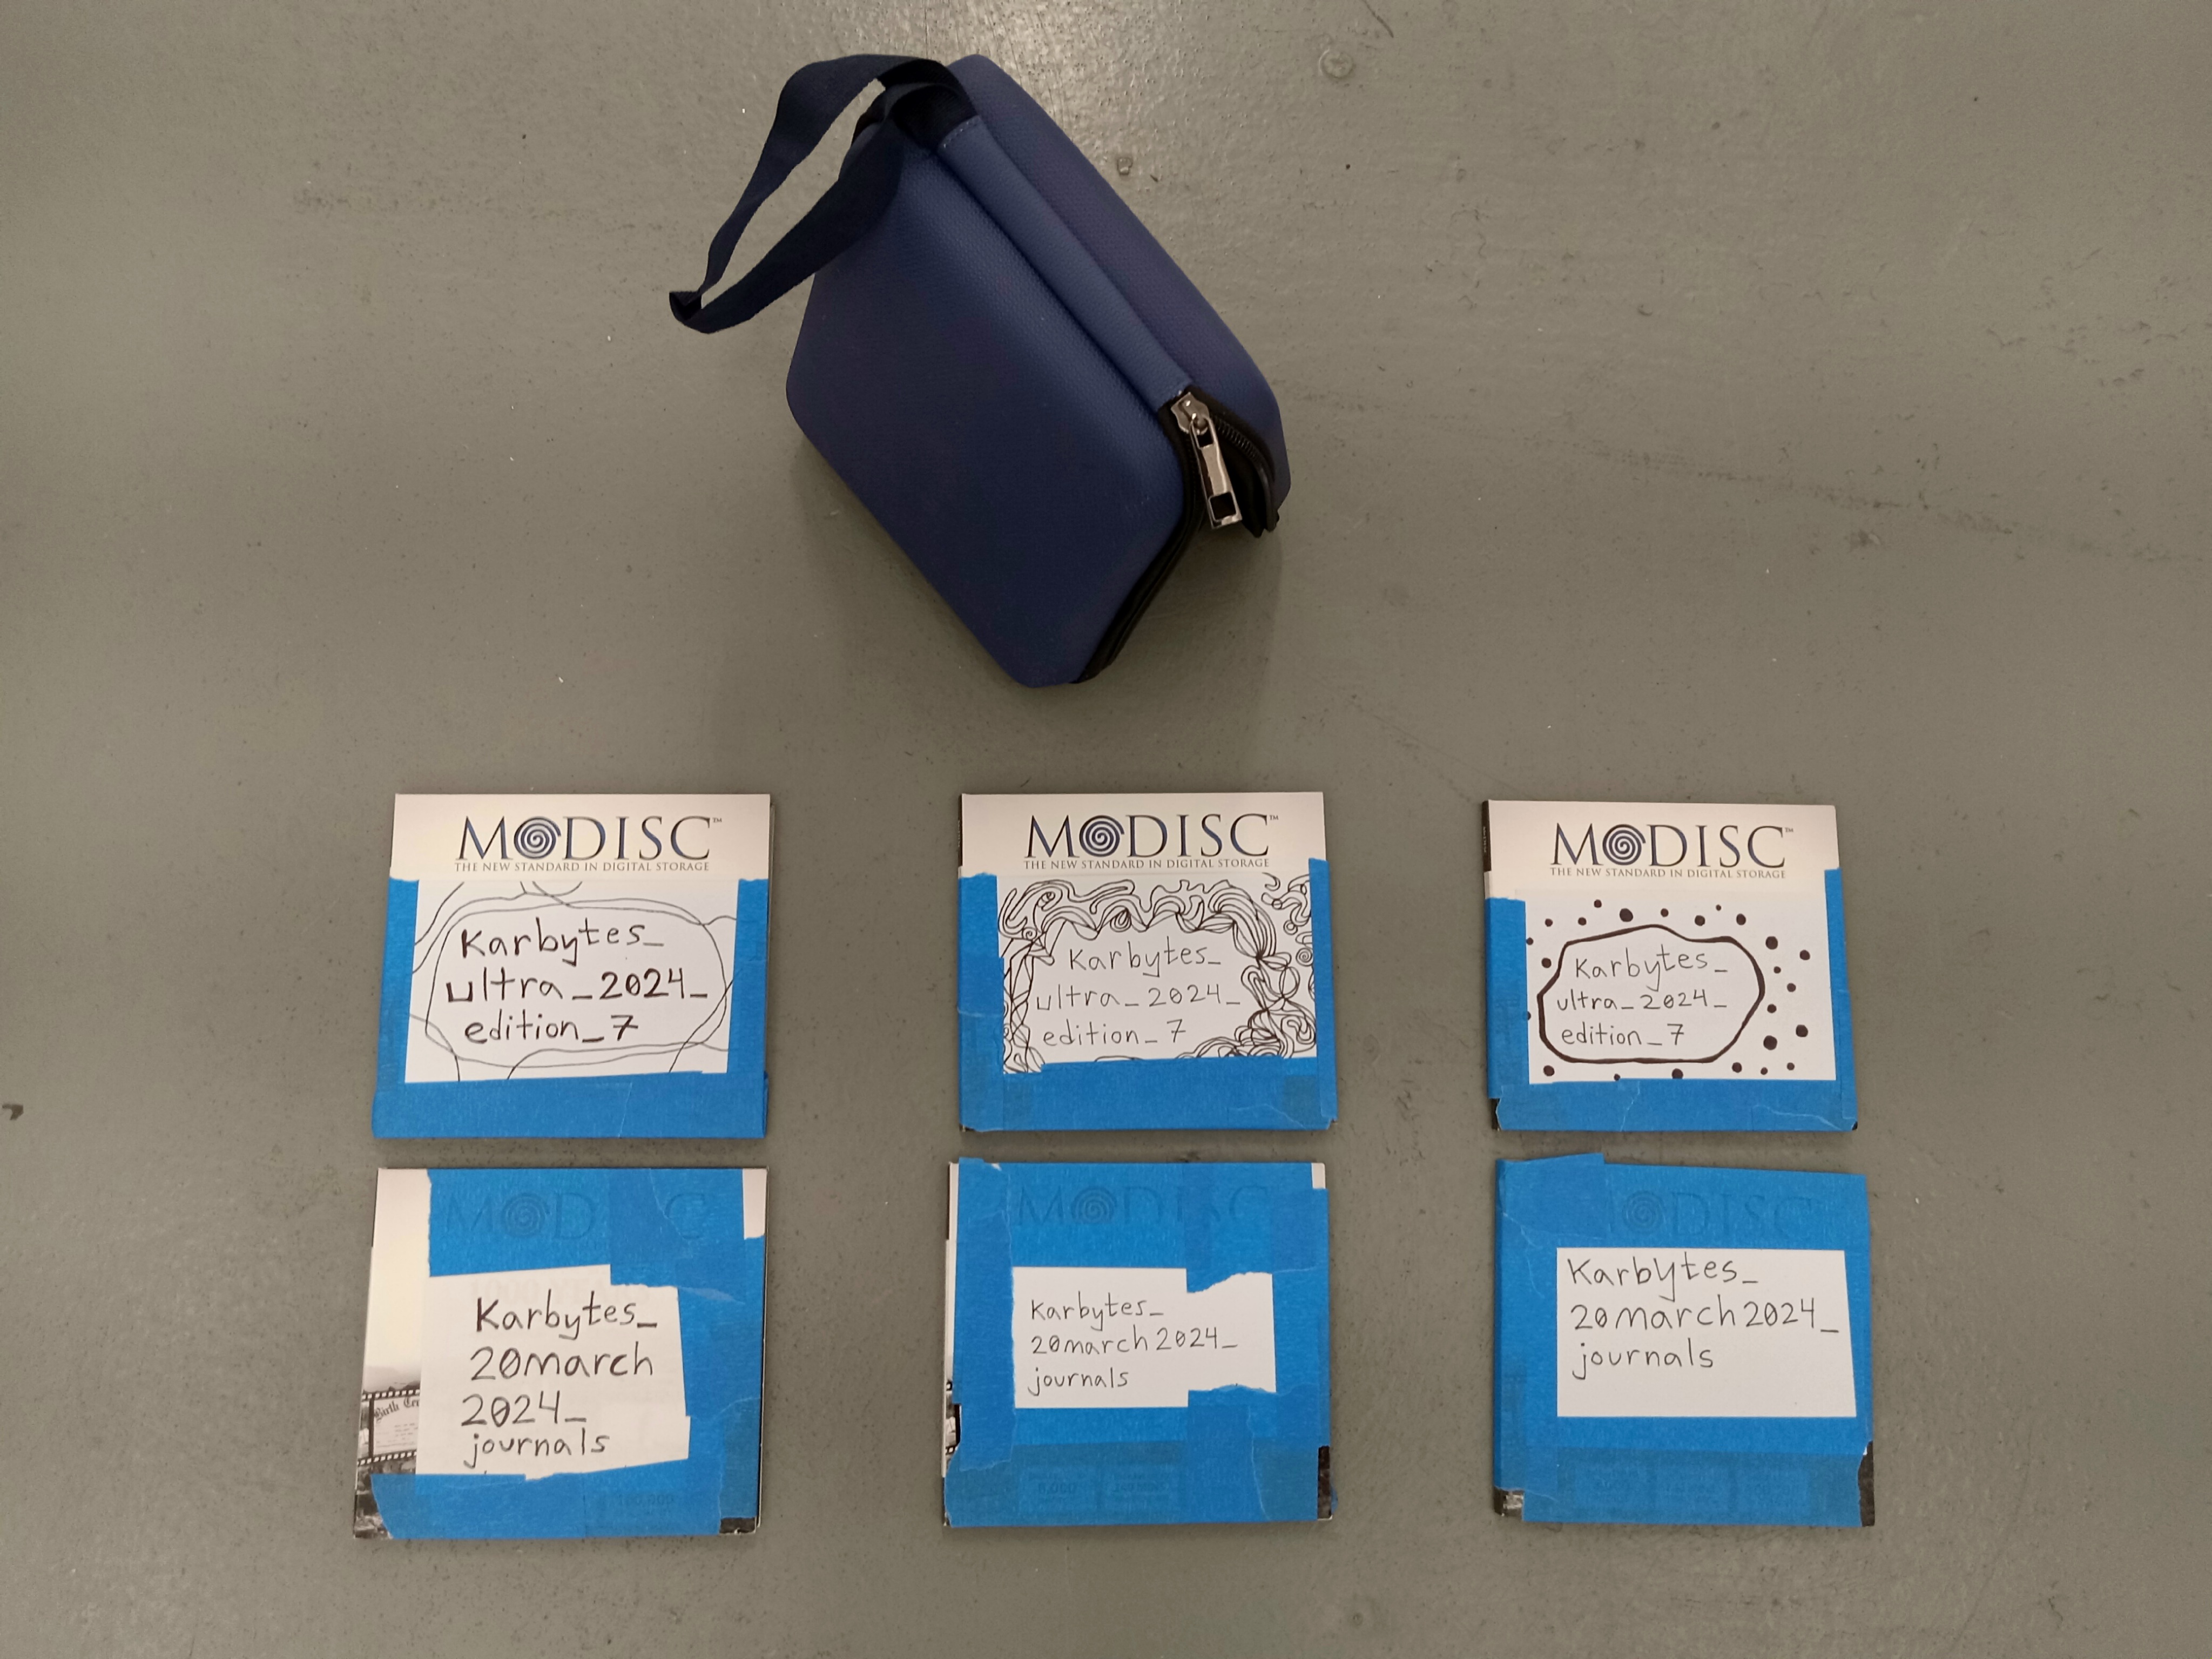 MODISC™
THE NEW STANDARD IN DIGITAL STORAGE
Karbytes_
ultra_2024_
edition_7
MODISC™
THE NEW STANDARD IN DIGITAL STORAGE
Karbytes_
ultra_2024_
edition_7
MODISC™
THE NEW STANDARD IN DIGITAL STORAGE
Karbytes_
ultra_2024_
edition_7
MODISC
Karbytes_
20march
2024_
journals
Birth
MODISC
Karbytes_
20march2024_
journals
MODISC
Karbytes_
20march2024_
journals